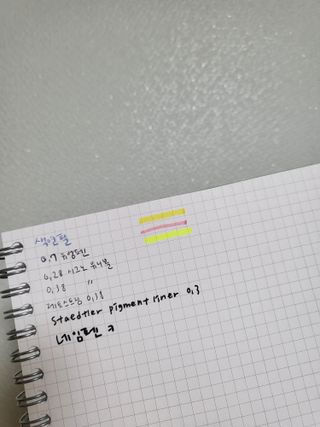 색연필
0.7 유성펜
0.28 시그노 유니볼
0.38 〃
제트스트림 0.38
Staedtler pigment liner 0.3
네임펜 ㅋ